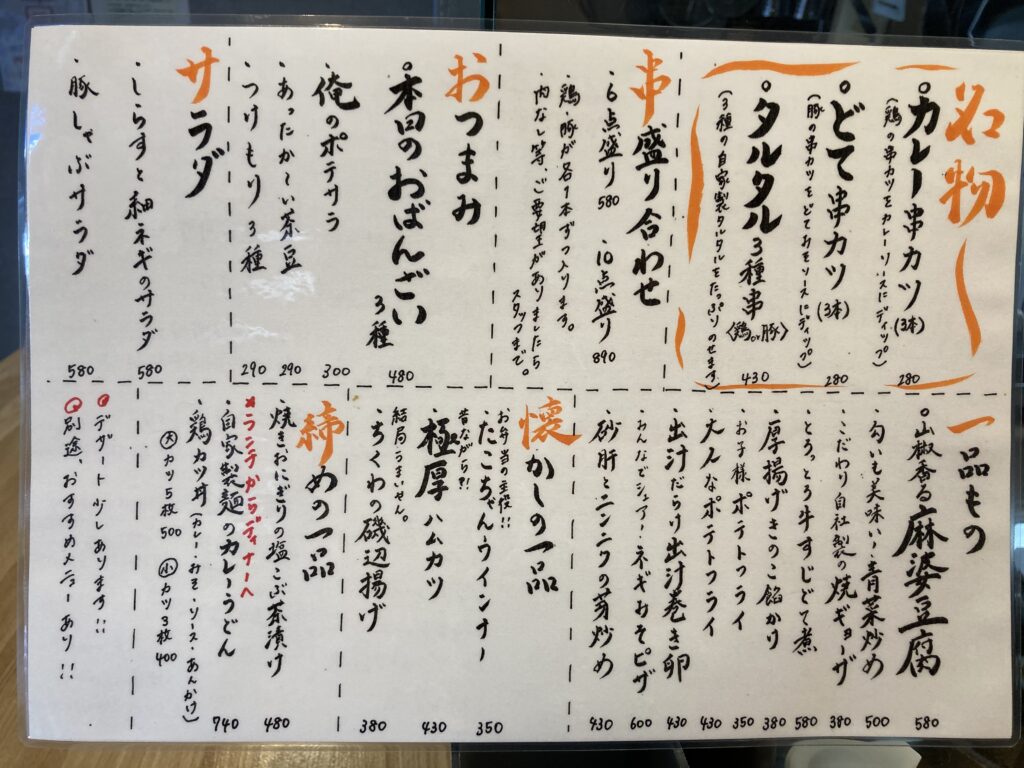 名物
カレー串カツ(3本) 280
(鶏の串カツをカレーソースにディップ)
どて串カツ(3本) 280
(豚の串カツをどてみそソースにディップ)
タルタル3種串〈鶏or豚〉 430
(3種の自家製タルタルをたっぷりのせます)
串盛り合わせ
・6点盛り 580 ・10点盛り 890
・鶏、豚が各1本ずつ入ります。
・内なし等、ご要望がありましたら
スタッフまで。
おつまみ
本日のおばんざい 3種 480
俺のポテサラ 300
・あったか〜い茶豆 290
・つけもり 3種 290
サラダ
・しらすと細ネギのサラダ 580
・豚しゃぶサラダ 580
一品もの
山椒香る麻婆豆腐 580
・匂いも美味い!青菜炒め 500
・こだわり自社製の焼ギョーザ 380
・とろっとろ牛すじどて煮 580
・厚揚げきのこ餡かけ 380
・お子様ポテトフライ 350
・大人なポテトフライ 430
・出汁だらけ出汁巻き卵 430
・みんなでシェアー・ネギみそピザ 600
・砂肝とニンニクの芽炒め 430
懐かしの一品
お弁当の主役!!
・たこちゃんウインナー 350
昔ながら?!
極厚ハムカツ 430
結局うまいやん。
・ちくわの磯辺揚げ 380
締めの一品
・焼きおにぎりの塩こぶ茶漬け 480
★ランチからディナーへ
・自家製麺のカレーうどん 740
・鶏カツ丼(カレー・みそ・ソース・あんかけ)
大 カツ5枚 500 小 カツ3枚 400
デザート少しあります!!
別途、おすすめメニューあり!!